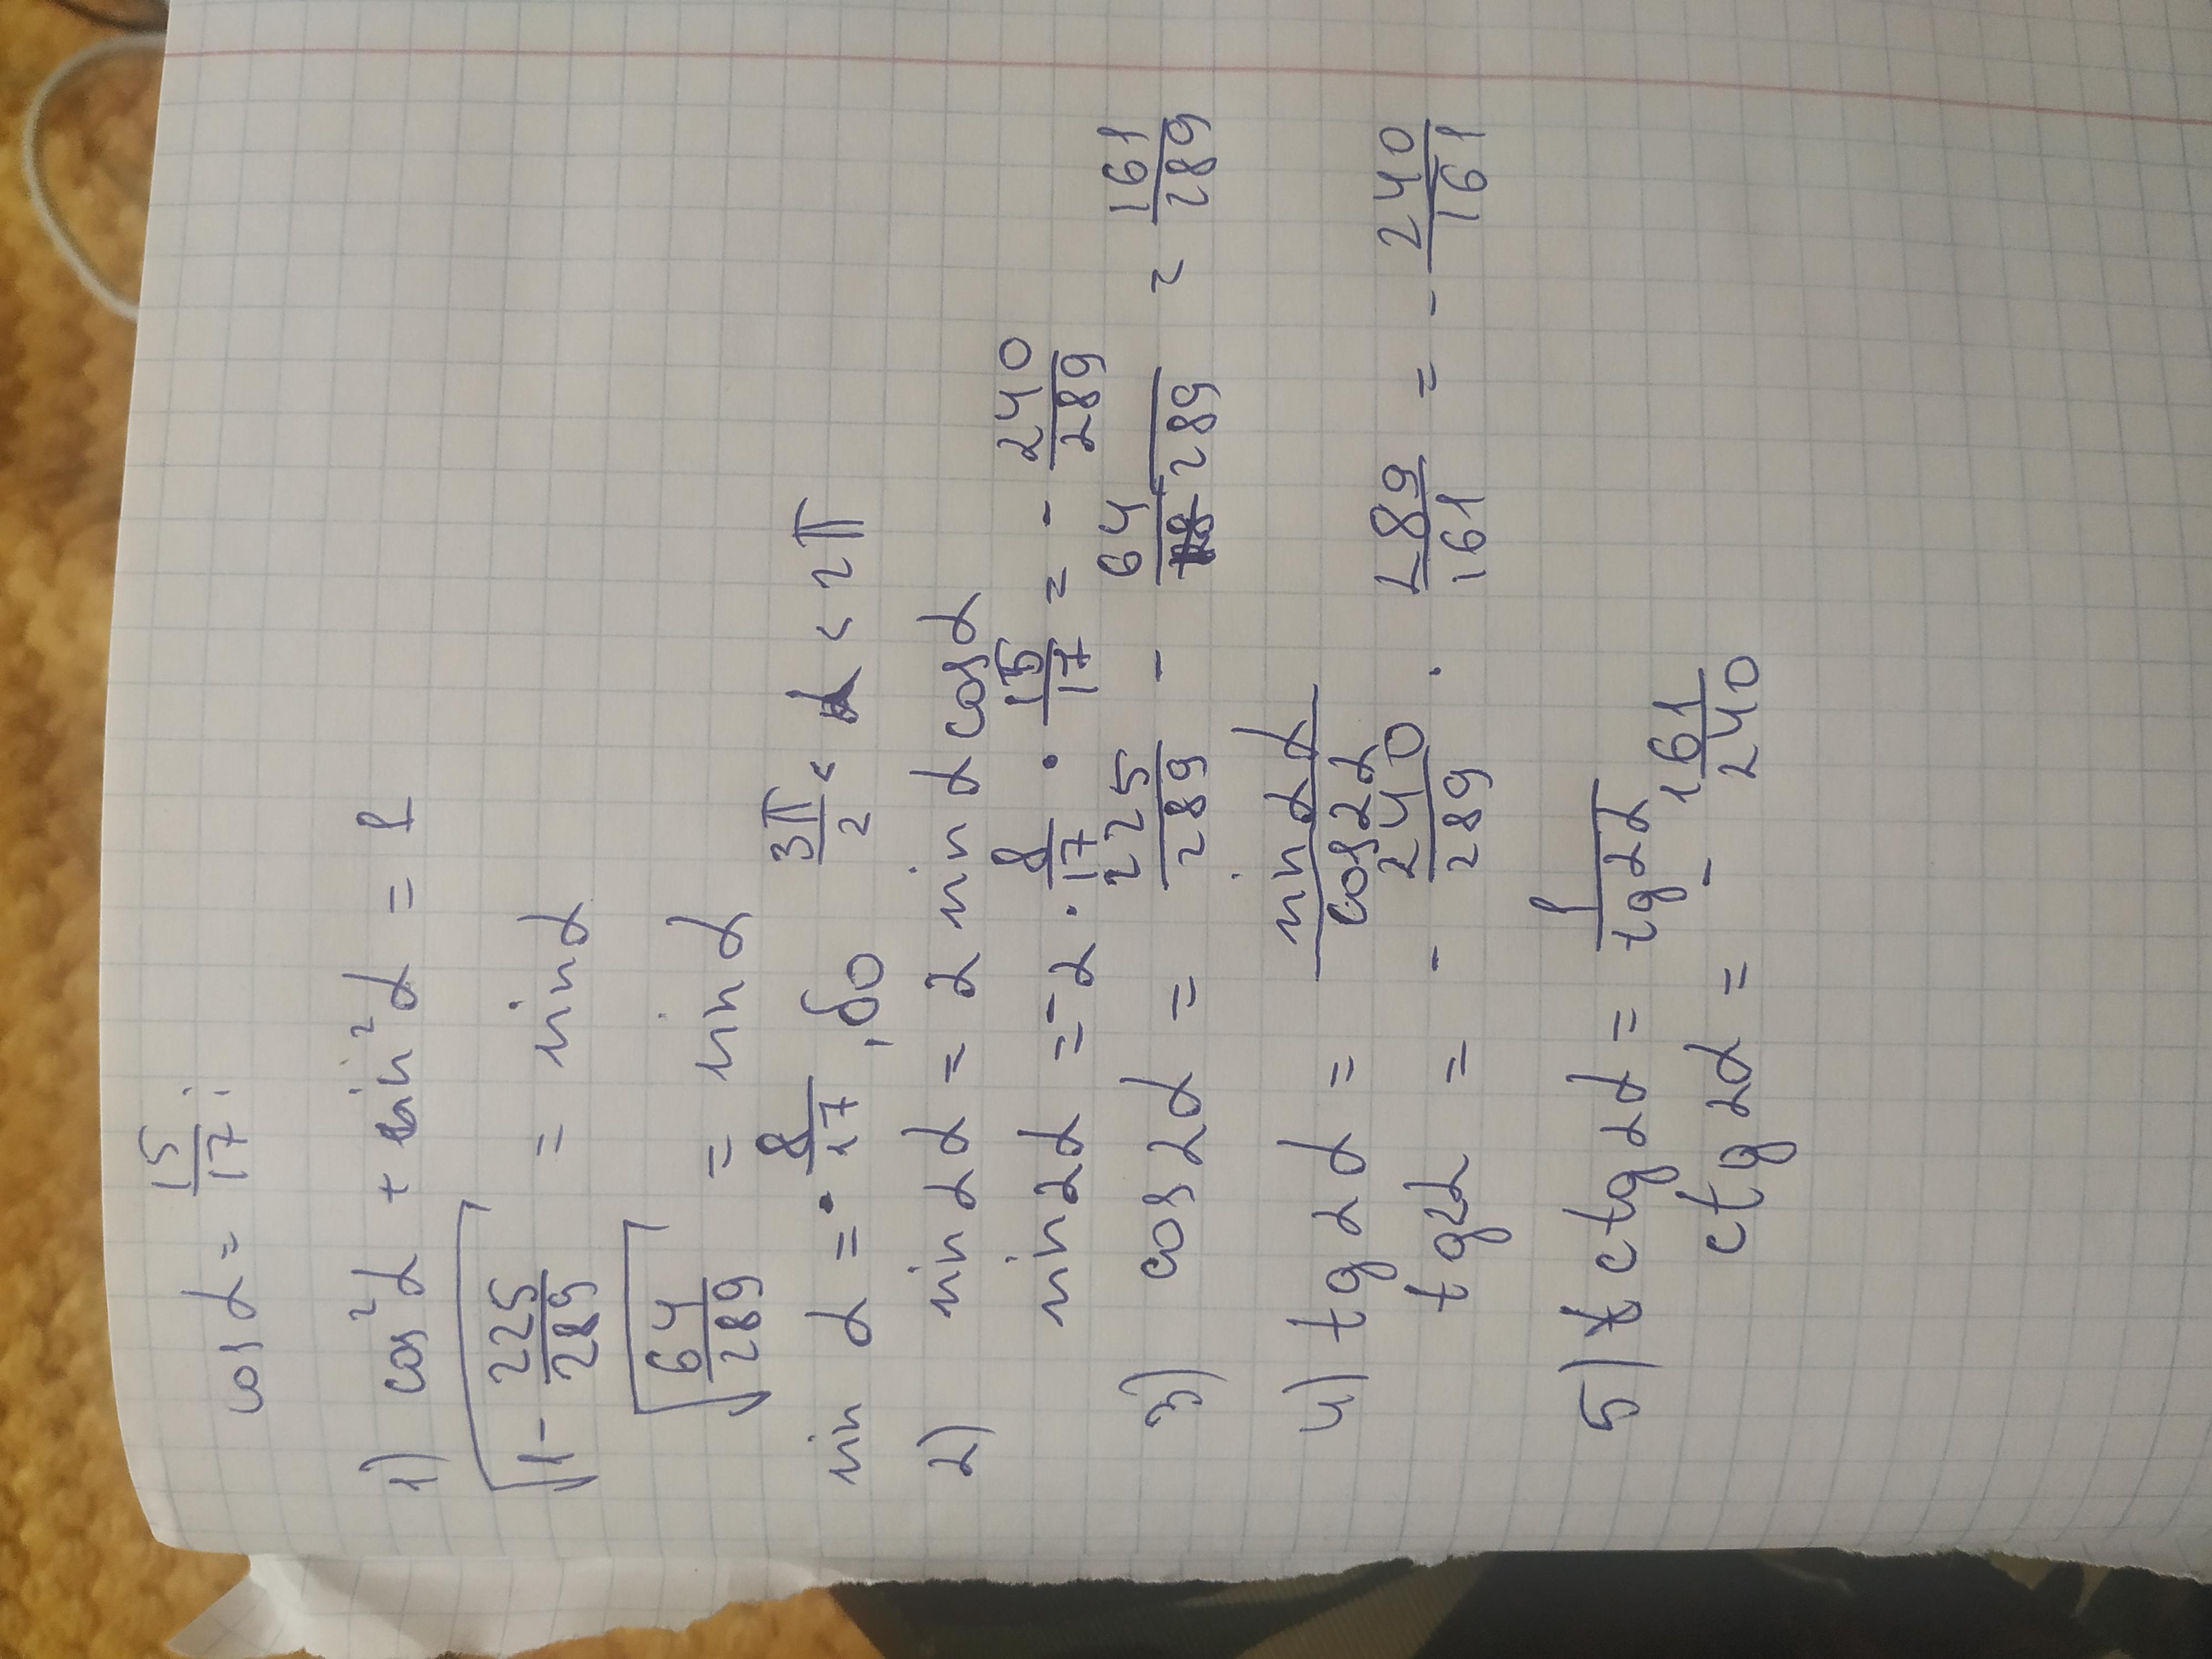 cos α = 15/17 ;
1) cos²α + sin²α = 1
√(1 - 225/289) = sin α
√(64/289) = sin α
sin α = - 8/17 , бо 3π/2 < α < 2π
2) sin 2α = 2 sin α cos α
sin 2α = - 2 · 8/17 · 15/17 = - 240/289
3) cos 2α = 225/289 - 64/289 = 161/289
4) tg 2α = sin 2α/cos 2α
tg 2α = - 240/289 · 289/161 = - 240/161
5) ctg 2α = 1/tg 2α
ctg 2α = - 161/240